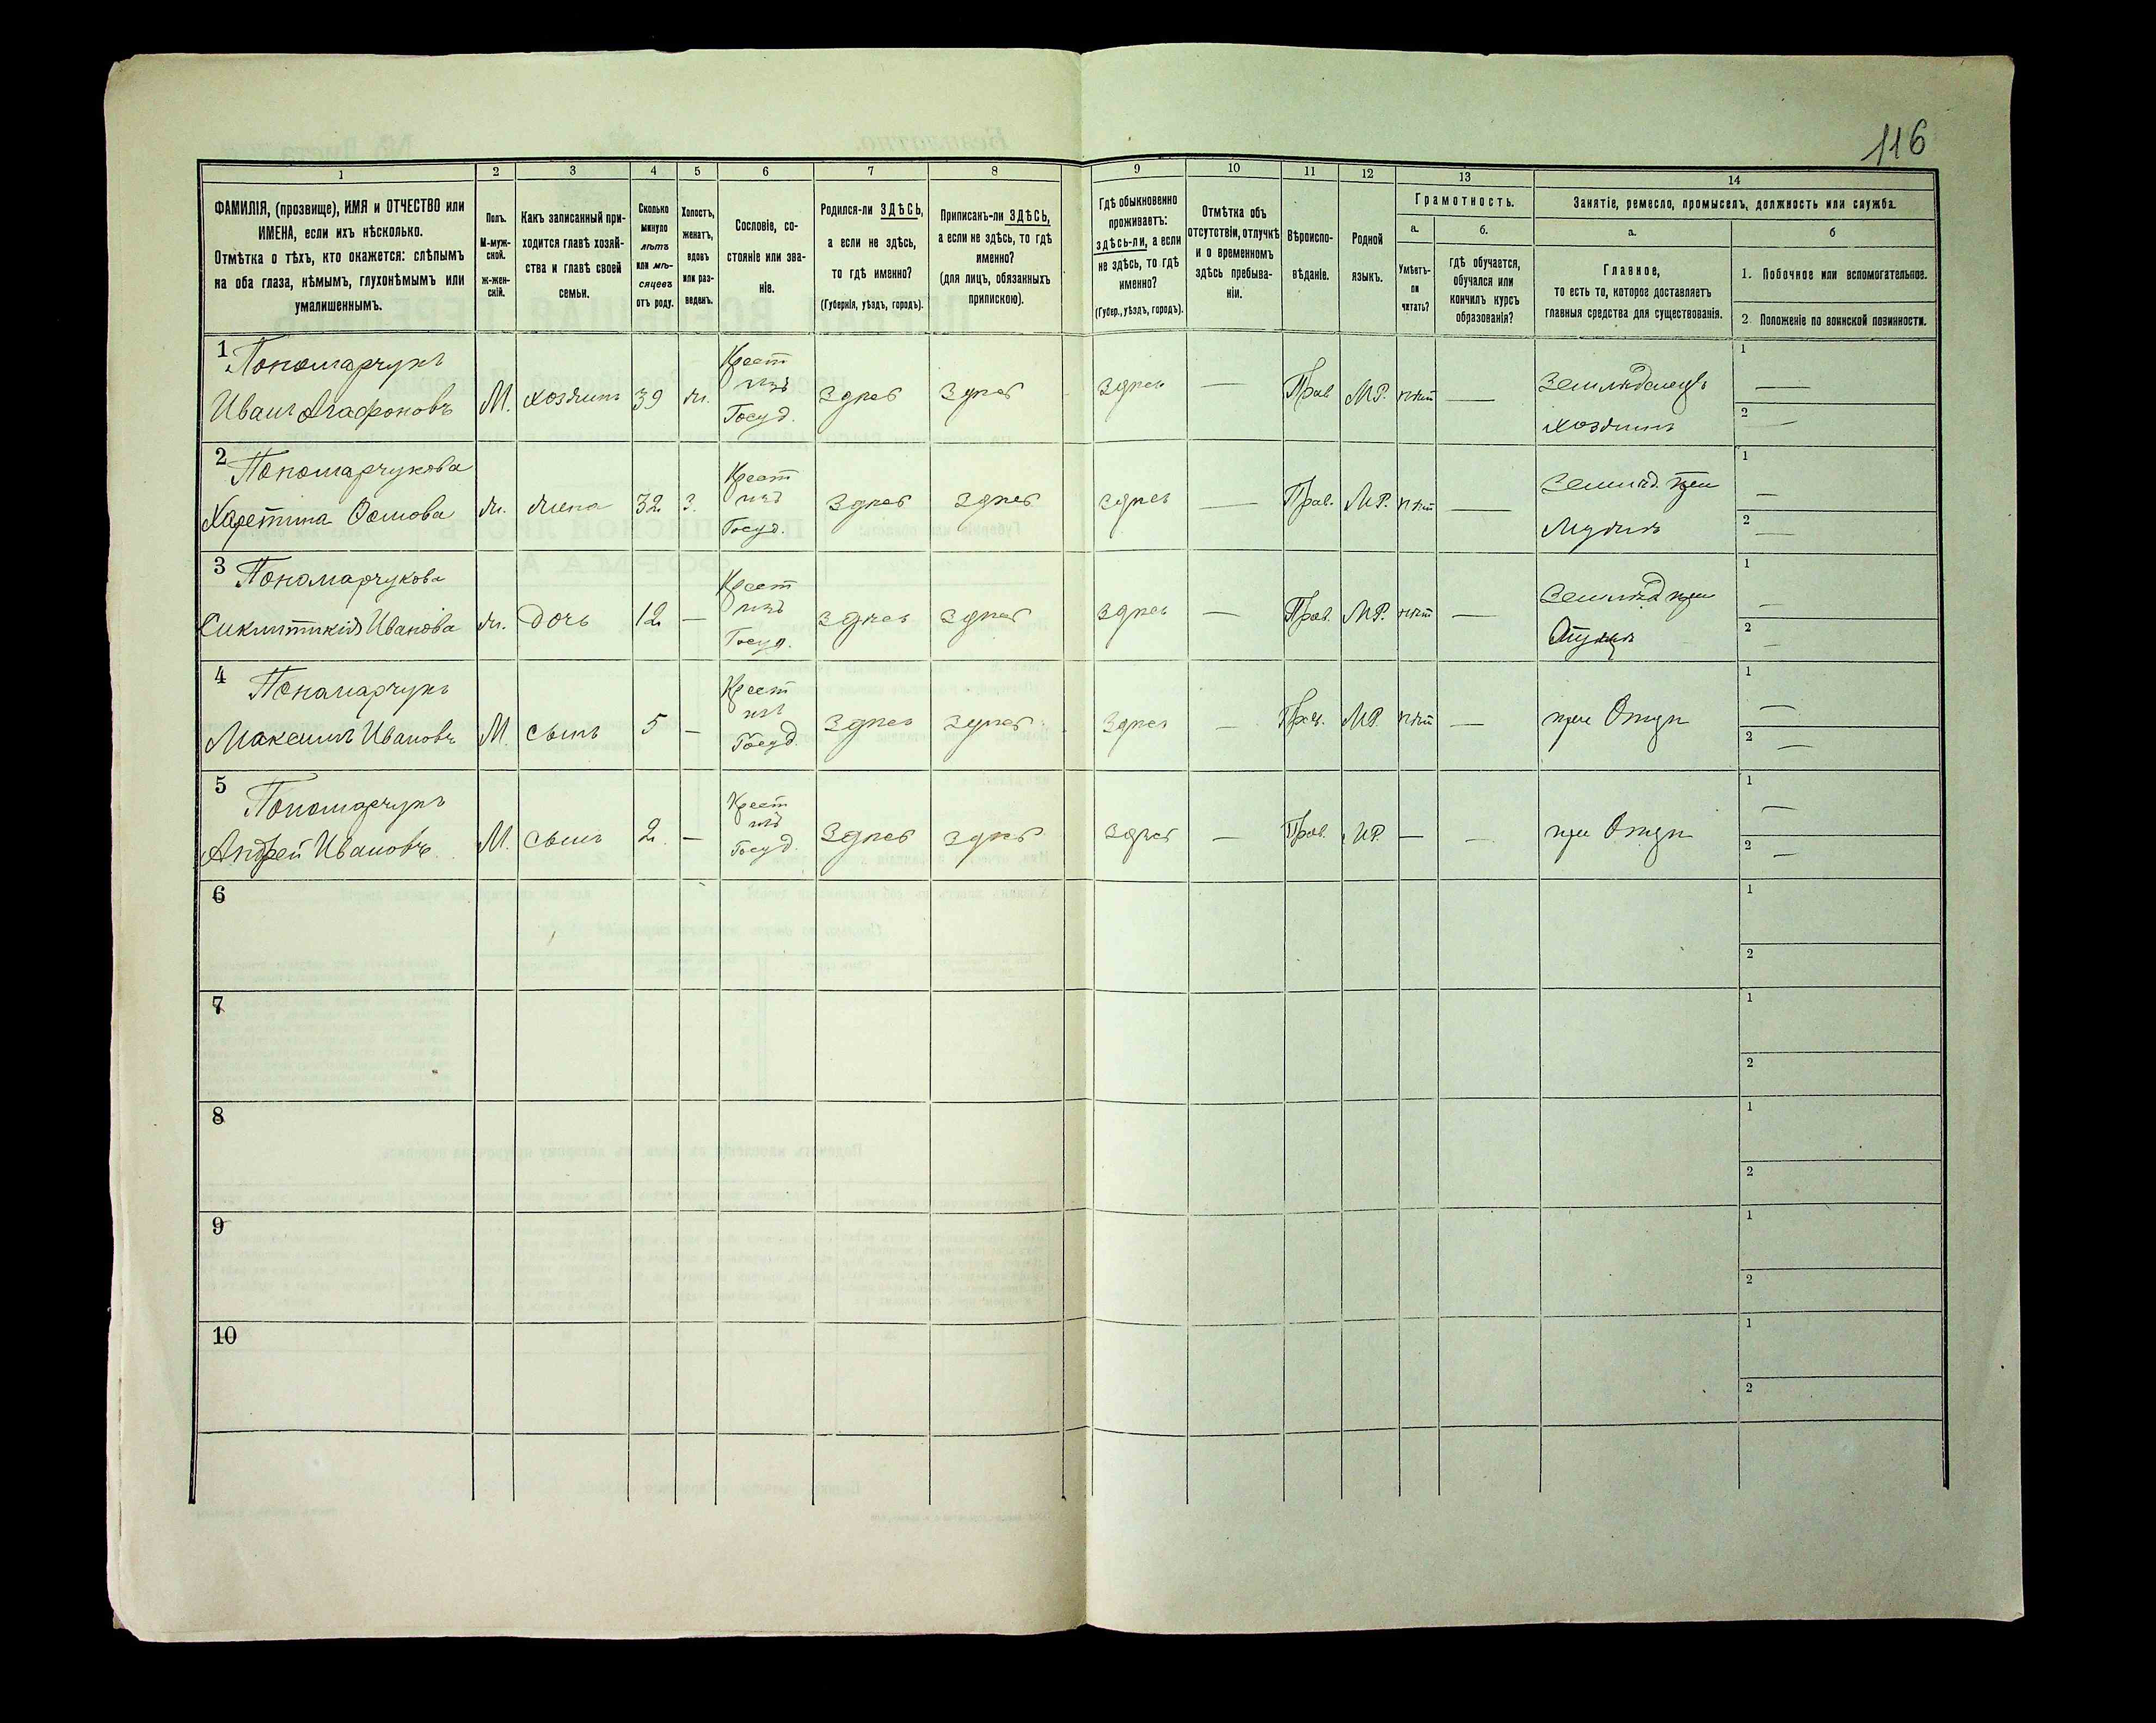 116
1 2 3 4 5 6 7 8 9 10 11 12 13 14
ФАМИЛІЯ, (прозвище), ИМЯ и ОТЧЕСТВО или
ИМЕНА, если ихъ нѣсколько.
Отмѣтка о тѣхъ, кто окажется: слѣпымъ
на оба глаза, нѣмымъ, глухонѣмымъ или
умалишеннымъ.
Полъ.
М-муж-
ской.
ж-жен-
скій.
Какъ записанный при-
ходится главѣ хозяй-
ства и главѣ своей
семьи.
Сколько
минуло
лѣтъ
или мѣ-
сяцевъ
отъ роду.
Холостъ,
женатъ,
вдовъ
или раз-
веденъ.
Сословіе, со-
стояніе или зва-
ніе.
Родился-ли ЗДѢСЬ,
а если не здѣсь,
то гдѣ именно?
(Губернія, уѣздъ, городъ).
Приписанъ-ли ЗДѢСЬ,
а если не здѣсь, то гдѣ
именно?
(для лицъ, обязанныхъ
припискою).
Гдѣ обыкновенно
проживаетъ:
здѣсь-ли, а если
не здѣсь, то гдѣ
именно?
(Губер., уѣздъ, городъ).
Отмѣтка объ
отсутствіи, отлучкѣ
и о временномъ
здѣсь пребыва-
ніи.
Вѣроиспо-
вѣданіе.
Родной
языкъ.
Грамотность.
а.
Умѣетъ-
ли
читать?
б.
гдѣ обучается,
обучался или
кончилъ курсъ
образованія?
Занятіе, ремесло, промыселъ, должность или служба.
а.
Главное,
то есть то, которое доставляетъ
главныя средства для существованія.
б
1. Побочное или вспомогательное.
2. Положеніе по воинской повинности.
1 Пономарчукъ
Иванъ Агафоновъ М. хозяинъ 39 ж.
Крест
изъ
Госуд.
Здѣсь Здѣсь Здѣсь — Прав МР. нѣт —
Земледелецъ
хозяинъ
1 —
2 —
2 Пономарчукова
Харетина Осипова ж. жена 32 З.
Крест
изъ
Госуд.
Здѣсь Здѣсь здѣсь — Прав. МР. нѣт —
Землѣд. при
Мужѣ
1 —
2 —
3 Пономарчукова
Иванова ж. дочь 12 —
Крест
изъ
Госуд.
Здѣсь Здѣсь Здѣсь — Прав. МР. нѣт —
Землѣд при
Отцѣ
1 —
2 —
4 Пономарчукъ
Максимъ Ивановъ М. сынъ 5 —
Крест
изъ
Госуд.
Здѣсь Здѣсь Здѣсь — Прав. МР. нѣт —
при Отцѣ
1 —
2 —
5 Пономарчукъ
Андрей Ивановъ М. сынъ 2 —
Крест
изъ
Госуд.
Здѣсь Здѣсь Здѣсь — Прав. МР. — —
при Отцѣ
1 —
2 —
6
1
2
7
1
2
8
1
2
9
1
2
10
1
2